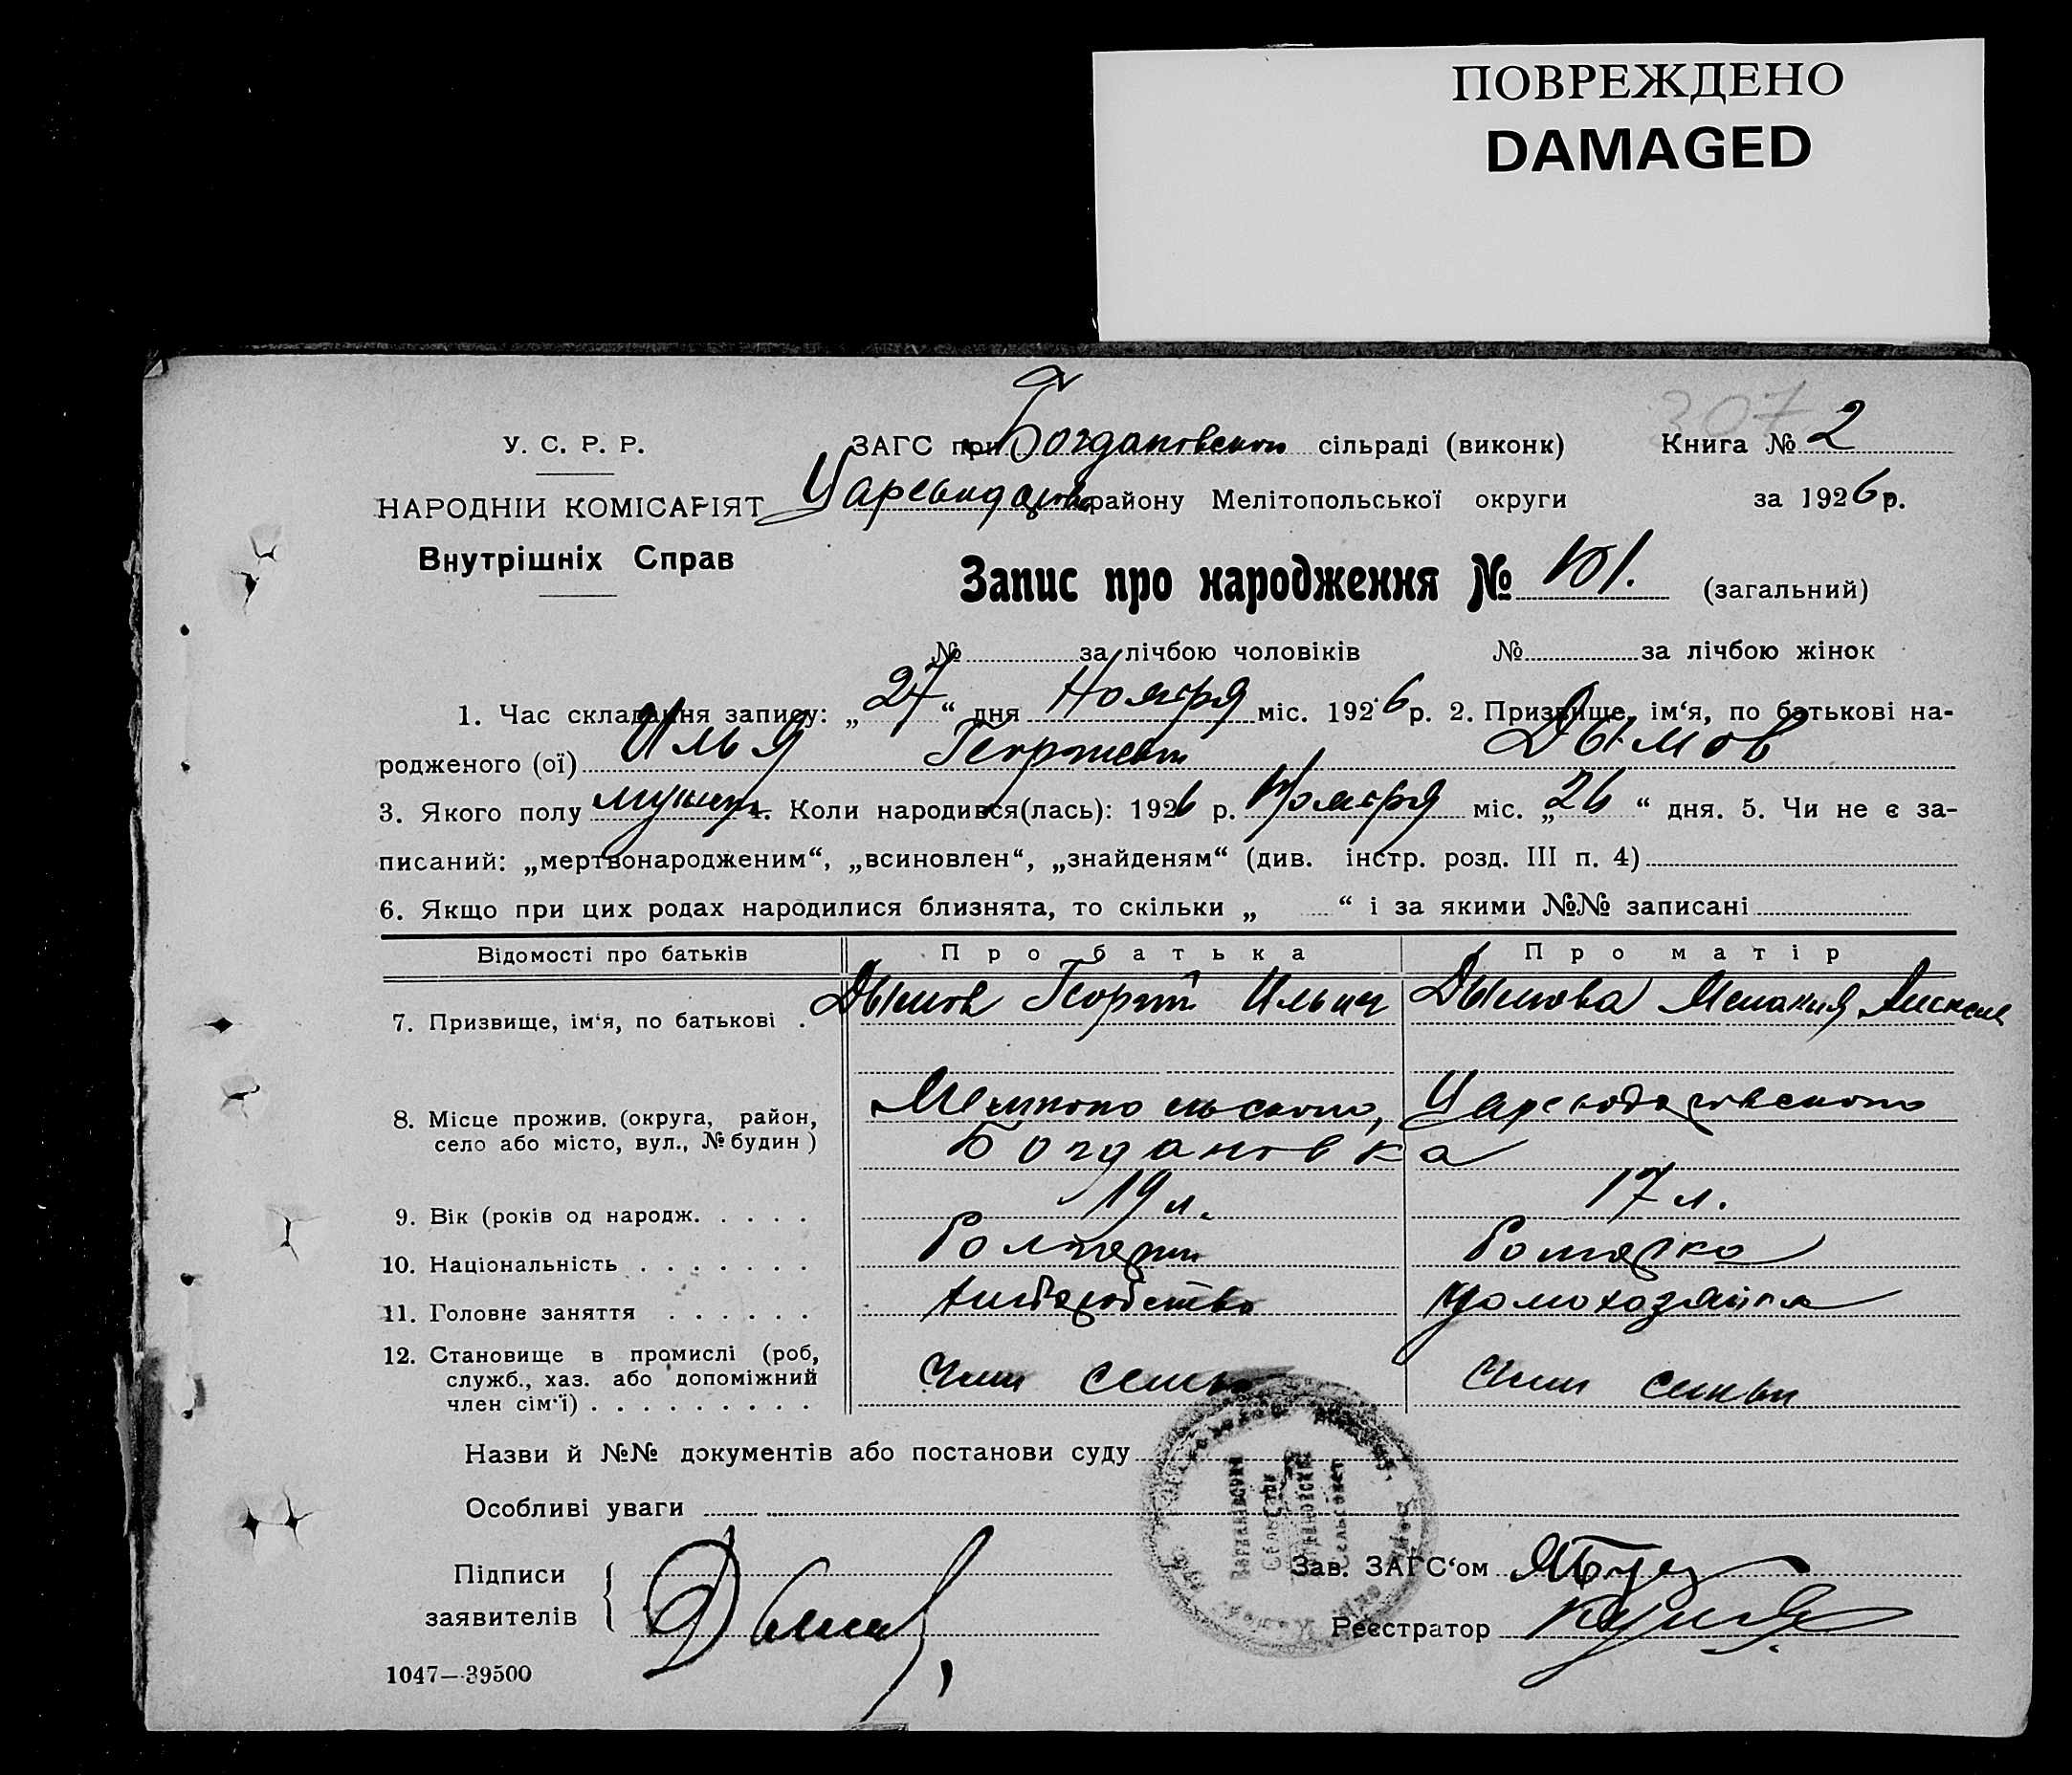 ПОВРЕЖДЕНО
DAMAGED
307
У. С. Р. Р.
ЗАГС при Богдановском сільраді (виконк)
Книга № 2
НАРОДНІЙ КОМІСАРІЯТ
району Мелітопольської округи
за 1926 р.
Внутрішніх Справ
Запис про народження № 101. (загальний)
№ за лічбою чоловіків № за лічбою жінок
1. Час складання запису: „27“ дня Ноября міс. 1926 р. 2. Призвище, ім‘я, по батькові на-
родженого (ої) Илья Георгиевич Дымов
3. Якого полу 4. Коли народився(лась): 1926 р. Ноября міс. „26“ дня. 5. Чи не є за-
писаний: „мертвонародженим“, „всиновлен“, „знайденям“ (див. інстр. розд. III п. 4)
6. Якщо при цих родах народилися близнята, то скільки „ “ і за якими №№ записані
Відомості про батьків Про батька Про матір
7. Призвище, ім‘я, по батькові . Дымов Георгий Ильич Дымова
8. Місце прожив. (округа, район,
село або місто, вул., № будин)
Мелитопольского,
Богдановка
9. Вік (років од народж. . . . . 19 л. 17 л.
10. Національність . . . . . . . Болгарин Болгарка
11. Головне заняття . . . . . . Хлебородство Домохозяйка
12. Становище в промислі (роб,
служб., хаз. або допоміжний
член сім‘ї) . . . . . . . . . Член семьи Член семьи
Назви й №№ документів або постанови суду
Особливі уваги
Підписи
заявителів
Дымов
Зав. ЗАГС‘ом
Реєстратор
1047—39500